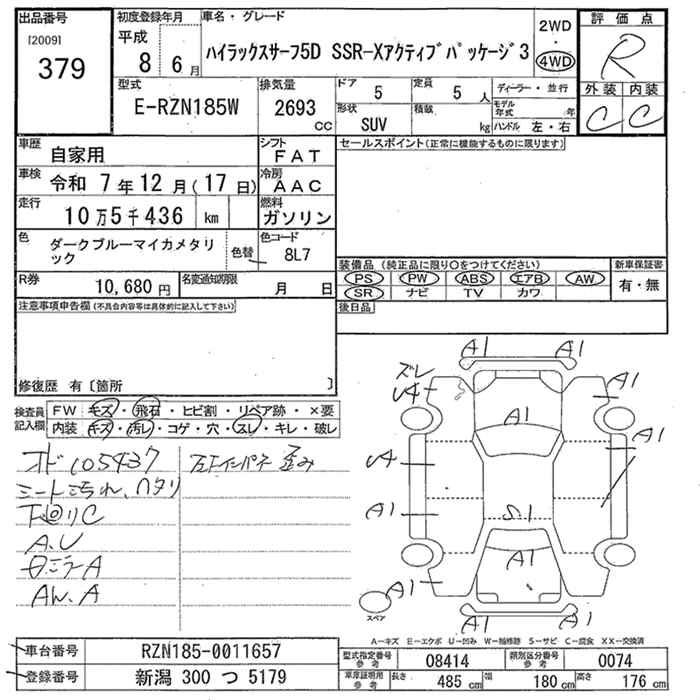 出品番号
[2009]
379
初度登録年月
平成
8 6月
車名・グレード
ハイラックスサーフ5D SSR-Xアクティブパッケージ3
2WD
・
4WD
評価点
R
外装 内装
C C
型式
E-RZN185W
排気量
2693
cc
ドア
5
定員
5 人
形状
SUV
積載
kg
ディーラー・並行
モデル年式 年
ハンドル 左・右
車歴
自家用
シフト
FAT
車検
令和 7年12月(17日)
冷房
AAC
走行
10万5千436 km
燃料
ガソリン
色
ダークブルーマイカメタリ
ック
色替
色コード
8L7
R券
10,680 円
名変通知期限
月 日
セールスポイント(正常に機能するものに限ります)
装備品(純正品に限り○をつけてください)
PS PW ABS エアB AW
SR ナビ TV カワ
新車保証書
有・無
後日品
注意事項申告欄(不具合内容等は具体的に記入して下さい)
修復歴 有〔箇所 〕
検査員
記入欄
FW キズ・飛石・ヒビ割・リペア跡・×要
内装 キズ・汚れ・コゲ・穴・スレ・キレ・破レ
オド105437
左下インパネ歪み
シート汚れ、ヘタリ
下廻りC
A.U
日ミラーA
AW.A
A1 A1
ズレ
U4
A1
A1
A1
U4
A1
S1
A1
A1
A1
A1 A1
スペア
A-キズ E-エクボ U-凹み W-補修跡 S-サビ C-腐食 XX-交換済
車台番号
RZN185-0011657
登録番号
新潟 300 つ 5179
型式指定番号
参考
08414
類別区分番号
参考
0074
車庫証明用
参考
長さ
485 cm
幅
180 cm
高さ
176 cm